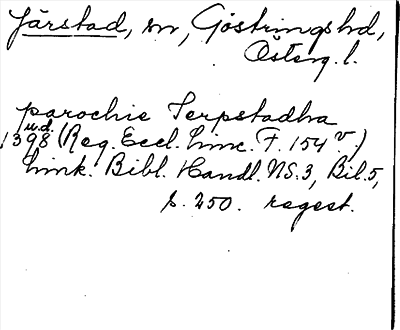 Järstad, sn, Göstringshd,
Österg. l.
parochie Jerpstadha
u.d.
1398 (Reg. Eccl. Linc. F. 154 v.)
Link. Bibl. Handl. NS. 3, Bil. 5,
s. 250. regest.